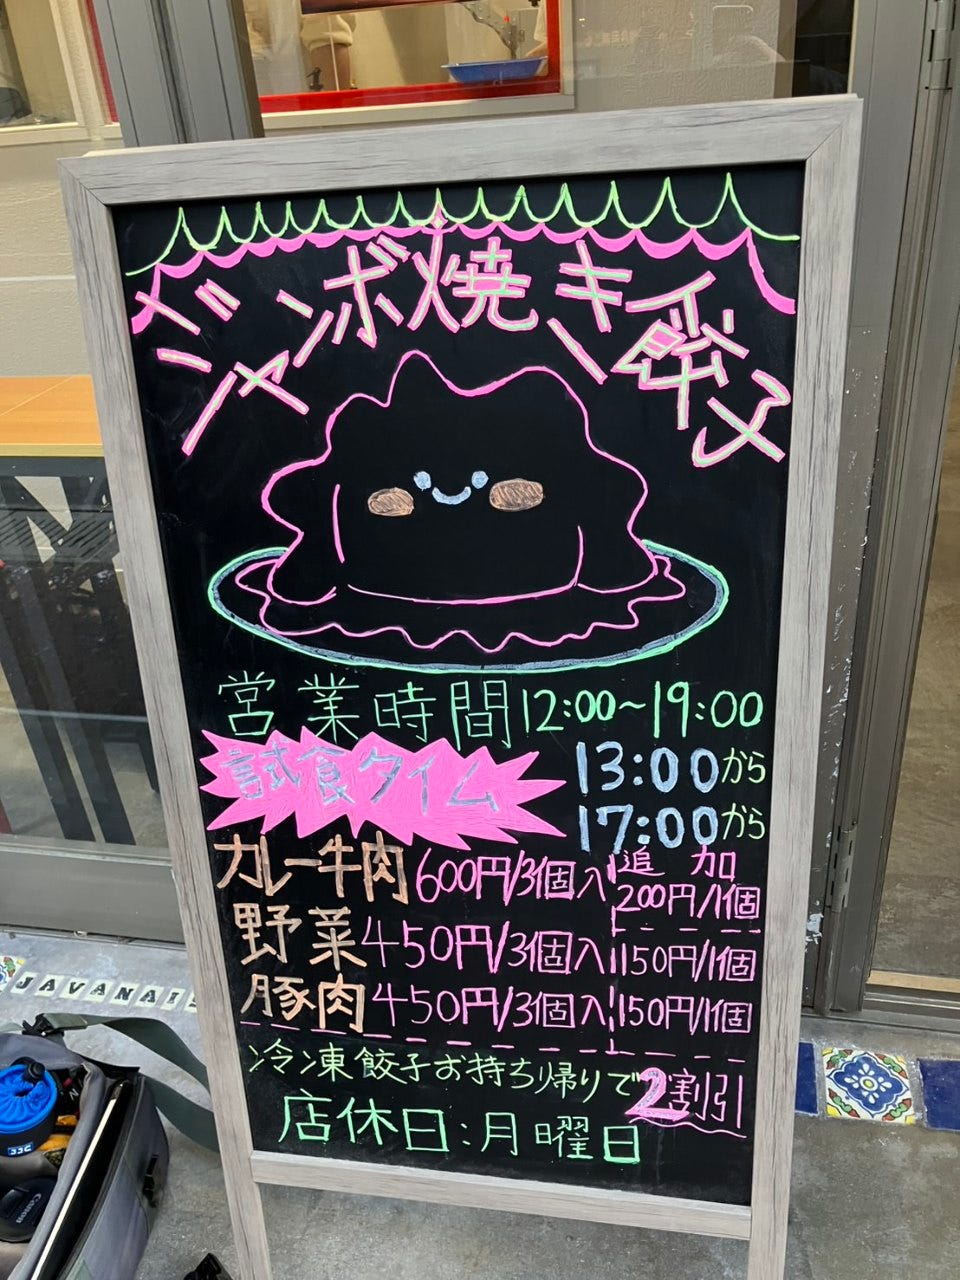 ジャンボ焼き餃子
営業時間12:00～19:00
試食タイム 13:00から
17:00から
カレー牛肉 600円/3個入 追加 200円/1個
野菜 450円/3個入 150円/1個
豚肉 450円/3個入 150円/1個
冷凍餃子お持ち帰りで2割引
店休日:月曜日
JAVANAIS
JJC
Canon